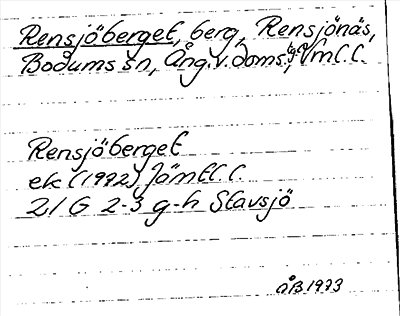 Rensjöberget, berg, Rensjönäs,
Bodums sn, Ång. v. doms. g:a, Vml. l.
Rensjöberget
ek (1972) Jämtl. l.
21 G 2-3 g-h Stavsjö
ÅB 1973